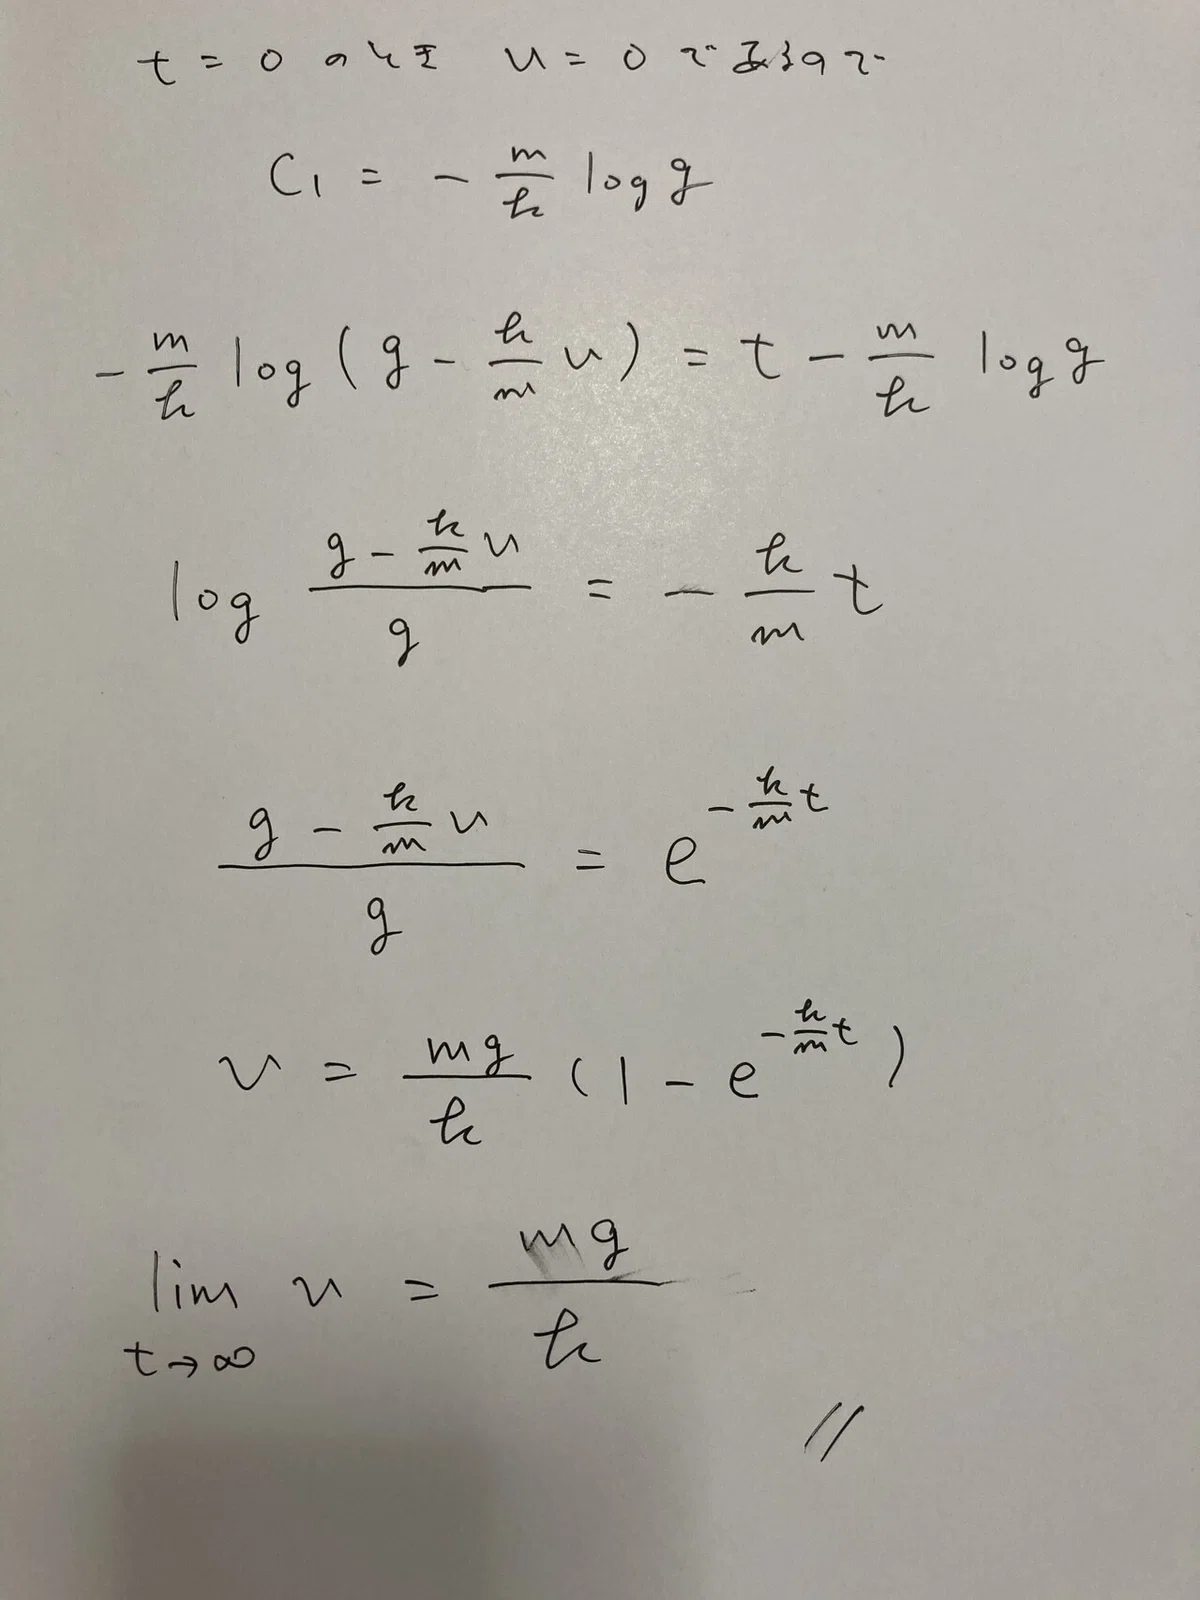 t = 0 のとき v = 0 であるので
C₁ = - m/k log g
- m/k log ( g - k/m v ) = t - m/k log g
log (g - k/m v)/g = - k/m t
(g - k/m v)/g = e^(- k/m t)
v = mg/k (1 - e^(- k/m t))
lim t→∞ v = mg/k
//